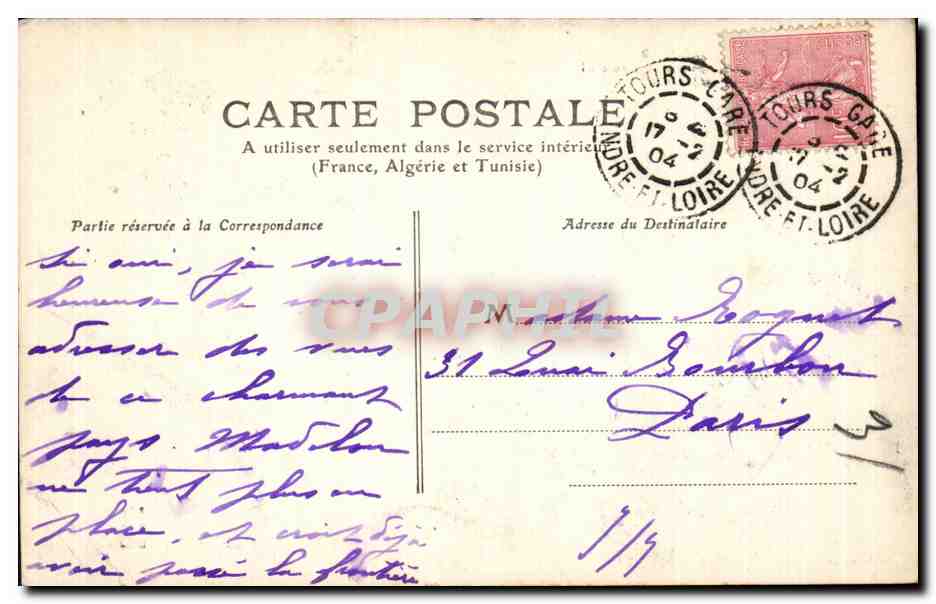 CARTE POSTALE
A utiliser seulement dans le service intérieur
(France, Algérie et Tunisie)
TOURS GARE
17 -2
04
INDRE-ET-LOIRE
TOURS GARE
17 -2
04
INDRE-ET-LOIRE
Partie réservée à la Correspondance
si oui, je serai
heureuse de vous
adresser des vues
de ce charmant
pays. Madelon
ne tient plus en
place, et croit déjà
avoir passé la frontière
Adresse du Destinataire
Madame Roquet
31 Quai Bourbon
Paris
31
CPAPHIL